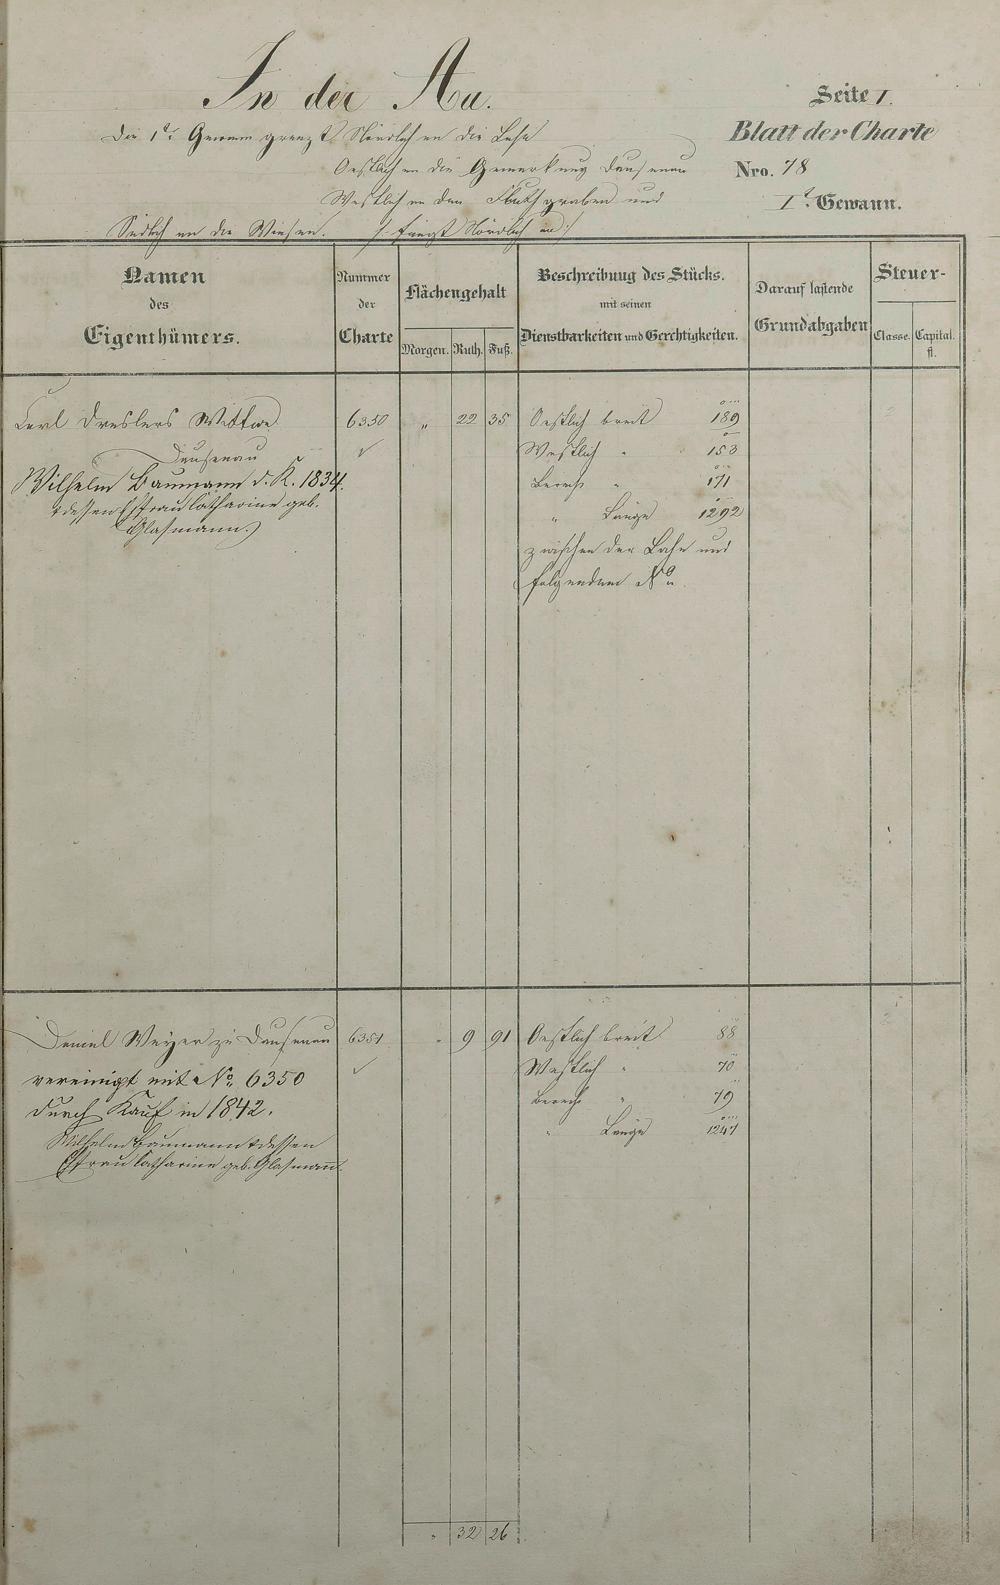 In der Au.
Seite 1.
Blatt der Charte
Nro. 78
1te. Gewann.
Die 1te. Gewann grenzt Nördlich an die Lahn
Oestlich an die Gemarkung Dausenau
Westlich an den Fluthgraben und
Südlich an die Wiesen. /: fängt Nördlich an :/
Namen des Eigenthümers.
Nummer der Charte
Flächengehalt
Morgen. Ruth. Fuß.
Beschreibung des Stücks.
mit seinen
Dienstbarkeiten und Gerechtigkeiten.
Darauf lastende
Grundabgaben
Steuer-
Classe. Capital.
fl.
Carl Dreslers Wittwe 6350 " 22 35 Oestlich breit 189
Dausenau Westlich " 153
Wilhelm Baumann d. K. 1834. Berech " 171
& dessen Ehfrau Catharine geb. " Länge 1292
Glasmann.) zwischen der Lahn und
folgendem No.
Daniel Weyer zu Dausenau 6351 " 9 91 Oestlich breit 88
vereinigt mit No. 6350 Westlich " 70
durch Kauf in 1842. Berech " 79
Wilhelm Baumann & dessen " Länge 1247
Ehfrau Catharine geb. Glasmann.
" 32 26